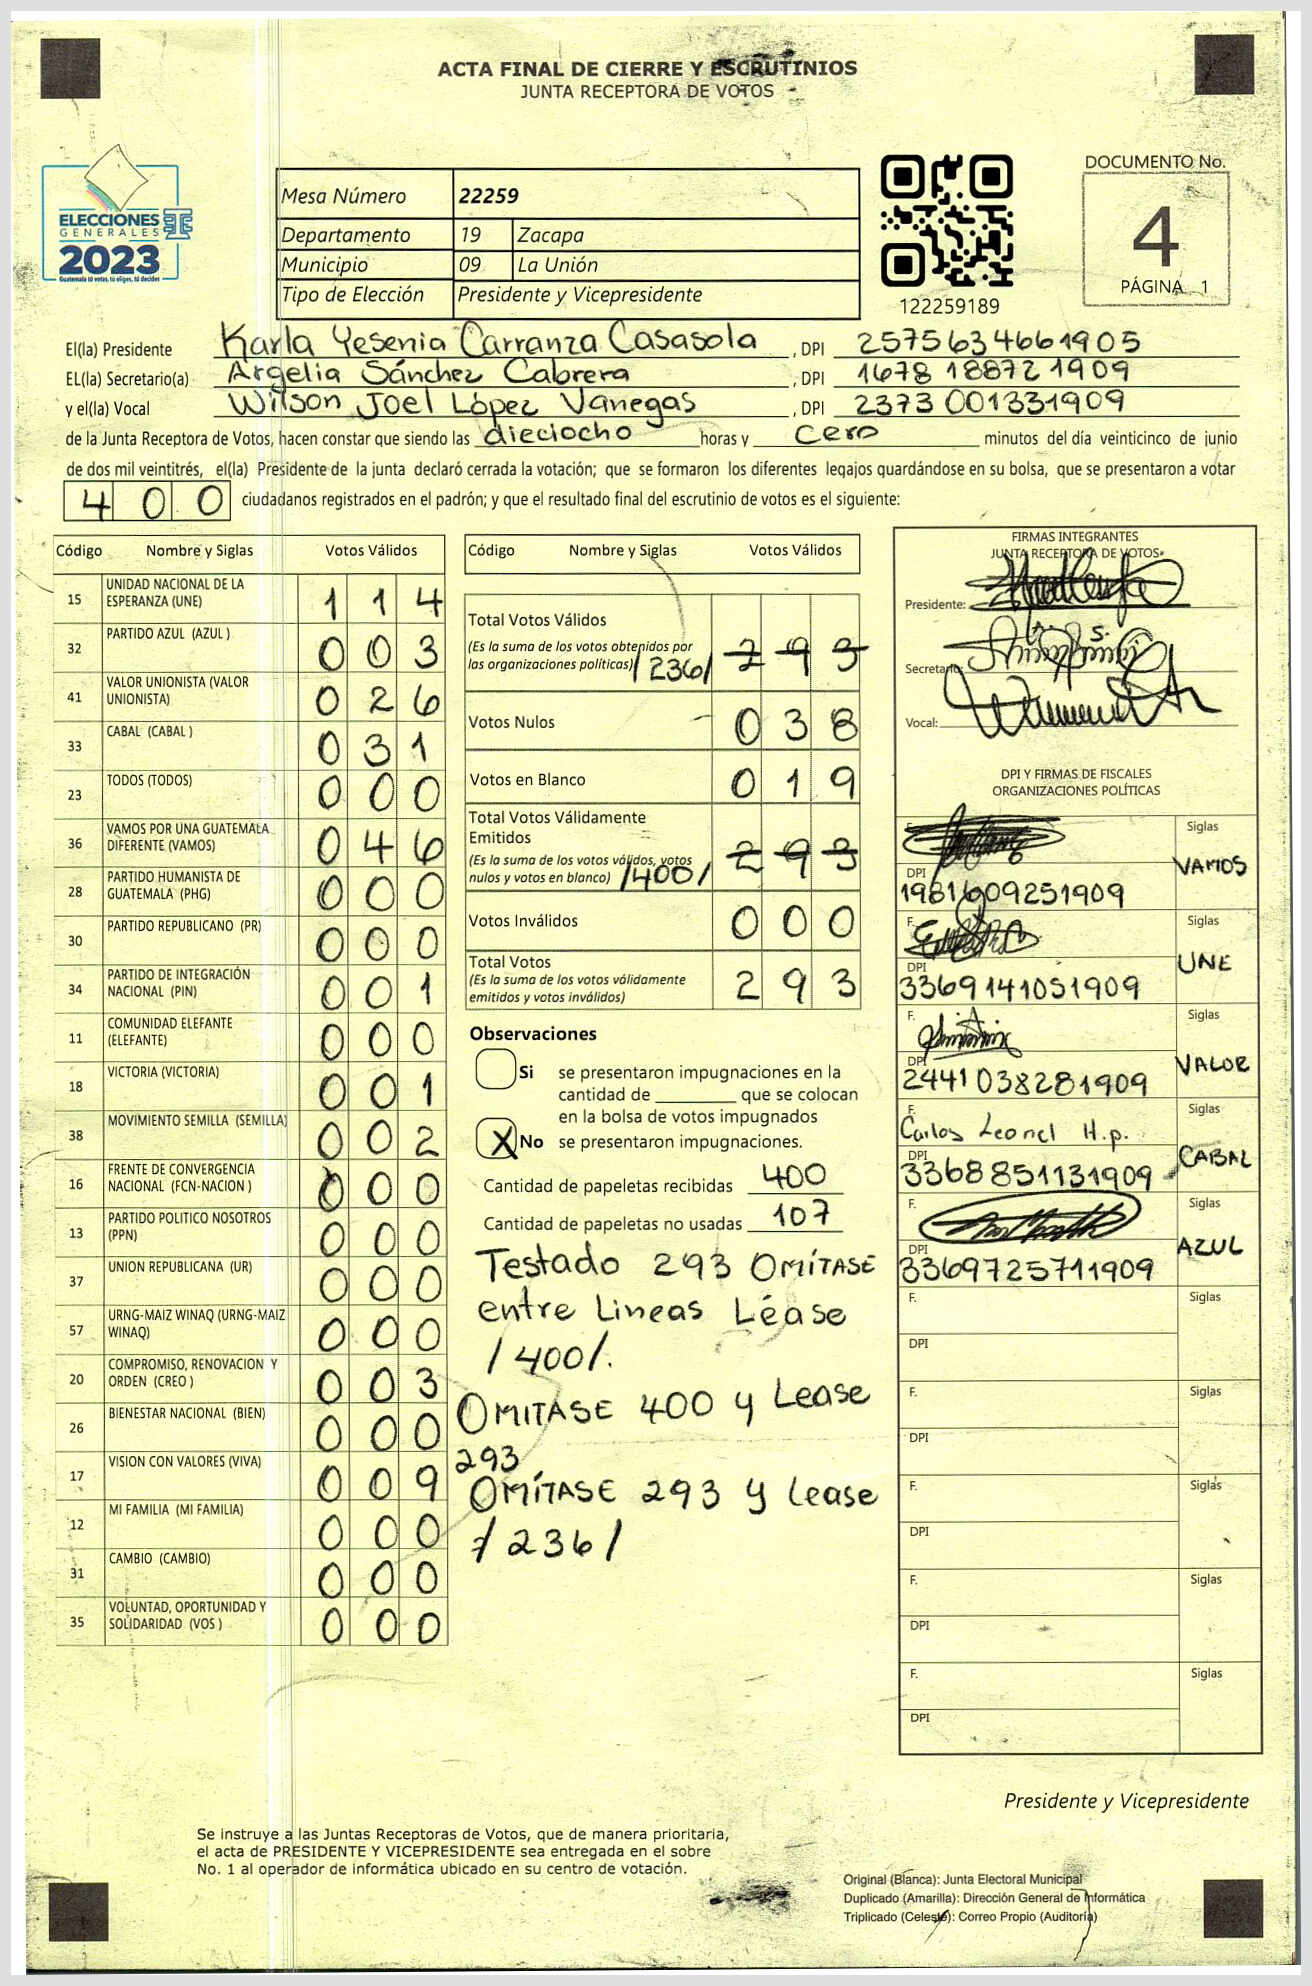 ACTA FINAL DE CIERRE Y ESCRUTINIOS
JUNTA RECEPTORA DE VOTOS
ELECCIONES
GENERALES
2023
Guatemala tú votas, tú eliges, tú decides
Mesa Número 22259
Departamento 19 Zacapa
Municipio 09 La Unión
Tipo de Elección Presidente y Vicepresidente
122259189
DOCUMENTO No.
4
PÁGINA 1
El(la) Presidente Karla Yesenia Carranza Casasola , DPI 2575634661905
EL(la) Secretario(a) Argelia Sánchez Cabrera , DPI 1678 18872 1909
y el(la) Vocal Wilson Joel López Vanegas , DPI 2373 001331909
de la Junta Receptora de Votos, hacen constar que siendo las dieciocho horas y Cero minutos del día veinticinco de junio
de dos mil veintitrés, el(la) Presidente de la junta declaró cerrada la votación; que se formaron los diferentes legajos guardándose en su bolsa, que se presentaron a votar
400 ciudadanos registrados en el padrón; y que el resultado final del escrutinio de votos es el siguiente:
Código Nombre y Siglas Votos Válidos
15 UNIDAD NACIONAL DE LA ESPERANZA (UNE) 114
32 PARTIDO AZUL (AZUL ) 003
41 VALOR UNIONISTA (VALOR UNIONISTA) 026
33 CABAL (CABAL ) 031
23 TODOS (TODOS) 000
36 VAMOS POR UNA GUATEMALA DIFERENTE (VAMOS) 046
28 PARTIDO HUMANISTA DE GUATEMALA (PHG) 000
30 PARTIDO REPUBLICANO (PR) 000
34 PARTIDO DE INTEGRACIÓN NACIONAL (PIN) 001
11 COMUNIDAD ELEFANTE (ELEFANTE) 000
18 VICTORIA (VICTORIA) 001
38 MOVIMIENTO SEMILLA (SEMILLA) 002
16 FRENTE DE CONVERGENCIA NACIONAL (FCN-NACION ) 000
13 PARTIDO POLITICO NOSOTROS (PPN) 000
37 UNION REPUBLICANA (UR) 000
57 URNG-MAIZ WINAQ (URNG-MAIZ WINAQ) 000
20 COMPROMISO, RENOVACION Y ORDEN (CREO ) 003
26 BIENESTAR NACIONAL (BIEN) 000
17 VISION CON VALORES (VIVA) 009
12 MI FAMILIA (MI FAMILIA) 000
31 CAMBIO (CAMBIO) 000
35 VOLUNTAD, OPORTUNIDAD Y SOLIDARIDAD (VOS ) 000
Código Nombre y Siglas Votos Válidos
Total Votos Válidos
(Es la suma de los votos obtenidos por
las organizaciones políticas) /236/ 293
Votos Nulos 038
Votos en Blanco 019
Total Votos Válidamente
Emitidos
(Es la suma de los votos válidos, votos
nulos y votos en blanco) /400/ 293
Votos Inválidos 000
Total Votos 293
(Es la suma de los votos válidamente
emitidos y votos inválidos)
Observaciones
Si se presentaron impugnaciones en la
cantidad de ________ que se colocan
en la bolsa de votos impugnados
X No se presentaron impugnaciones.
Cantidad de papeletas recibidas 400
Cantidad de papeletas no usadas 107
Testado 293 OMÍTASE
entre Lineas Léase
/400/.
OMITASE 400 y Lease
293
OMÍTASE 293 y Lease
/236/
FIRMAS INTEGRANTES
JUNTA RECEPTORA DE VOTOS
Presidente:
Secretario:
Vocal:
DPI Y FIRMAS DE FISCALES
ORGANIZACIONES POLÍTICAS
F. Siglas
DPI 1981609251909 VAMOS
F. Siglas
DPI 3369141051909 UNE
F. Siglas
DPI 2441038281909 VALOR
F. Carlos Leonel H.p. Siglas
DPI 3368851131909 CABAL
F. Siglas
DPI 3369725711909 AZUL
F. Siglas
DPI
F. Siglas
DPI
F. Siglas
DPI
F. Siglas
DPI
F. Siglas
DPI
Presidente y Vicepresidente
Se instruye a las Juntas Receptoras de Votos, que de manera prioritaria,
el acta de PRESIDENTE Y VICEPRESIDENTE sea entregada en el sobre
No. 1 al operador de informática ubicado en su centro de votación.
Original (Blanca): Junta Electoral Municipal
Duplicado (Amarilla): Dirección General de Informática
Triplicado (Celeste): Correo Propio (Auditoría)